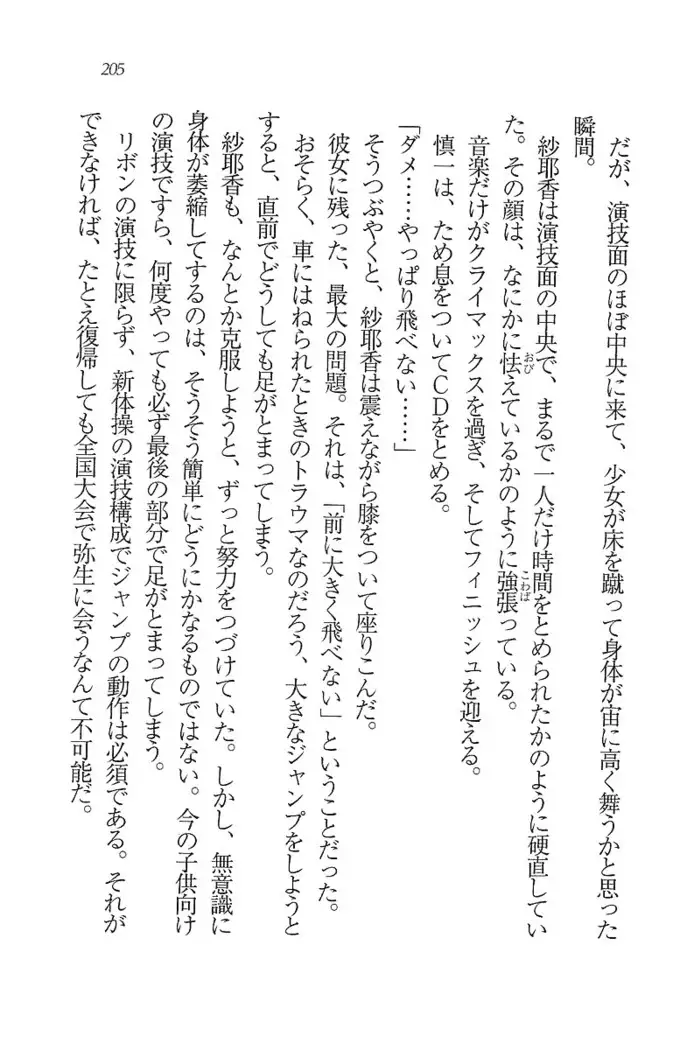 205
だが、演技面のほぼ中央に来て、少女が床を蹴って身体が宙に高く舞うかと思った
瞬間。
紗耶香は演技面の中央で、まるで一人だけ時間をとめられたかのように硬直してい
た。その顔は、なにかに怯えているかのように強張っている。
おび
こわば
音楽だけがクライマックスを過ぎ、そしてフィニッシュを迎える。
慎一は、ため息をついてCDをとめる。
「ダメ……やっぱり飛べない……」
そうつぶやくと、紗耶香は震えながら膝をついて座りこんだ。
彼女に残った、最大の問題。それは、「前に大きく飛べない」ということだった。
おそらく、車にはねられたときのトラウマなのだろう、大きなジャンプをしようと
すると、直前でどうしても足がとまってしまう。
紗耶香も、なんとか克服しようと、ずっと努力をつづけていた。しかし、無意識に
身体が萎縮してするのは、そうそう簡単にどうにかなるものではない。今の子供向け
の演技ですら、何度やっても必ず最後の部分で足がとまってしまう。
リボンの演技に限らず、新体操の演技構成でジャンプの動作は必須である。それが
できなければ、たとえ復帰しても全国大会で弥生に会うなんて不可能だ。